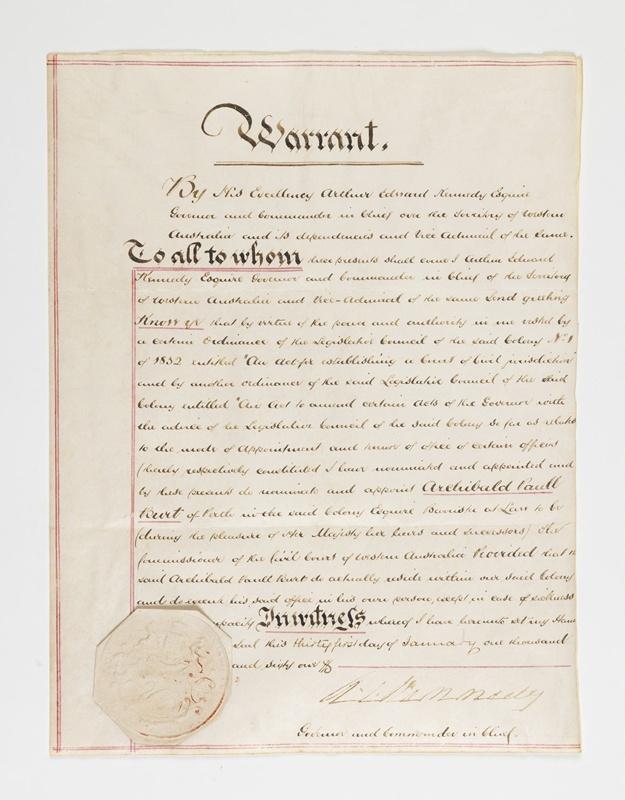 Warrant.
By His Excellency Arthur Edward Kennedy Esquire
Governor and Commander in Chief over the Territory of Western
Australia and its dependencies and Vice Admiral of the same.
To all to whom these presents shall come I Arthur Edward
Kennedy Esquire Governor and Commander in Chief of the Territory
of Western Australia and Vice-Admiral of the same Send greeting
Know ye that by virtue of the power and authority in me vested by
a certain Ordinance of the Legislative Council of the said Colony No. 1
of 1832 entitled "An Act for establishing a Court of Civil jurisdiction"
and by another ordinance of the said Legislative Council of the said
Colony entitled "An Act to amend certain Acts of the Governor with
the advice of the Legislative Council of the said Colony so far as relates
to the mode of appointment and tenure of office of certain officers
thereby respectively constituted I have nominated and appointed and
by these presents do nominate and appoint Archibald Paull
Burt of Perth in the said Colony Esquire Barrister at Law to be
(during the pleasure of Her Majesty her heirs and successors) the
Commissioner of the Civil Court of Western Australia Provided that the
said Archibald Paull Burt do actually reside within our said Colony
and do execute his said office in his own person, except in case of sickness
In witness whereof I have hereunto set my Hand
Seal this thirty first day of January one thousand
and sixty one
A. E. Kennedy
Governor and Commander in Chief.